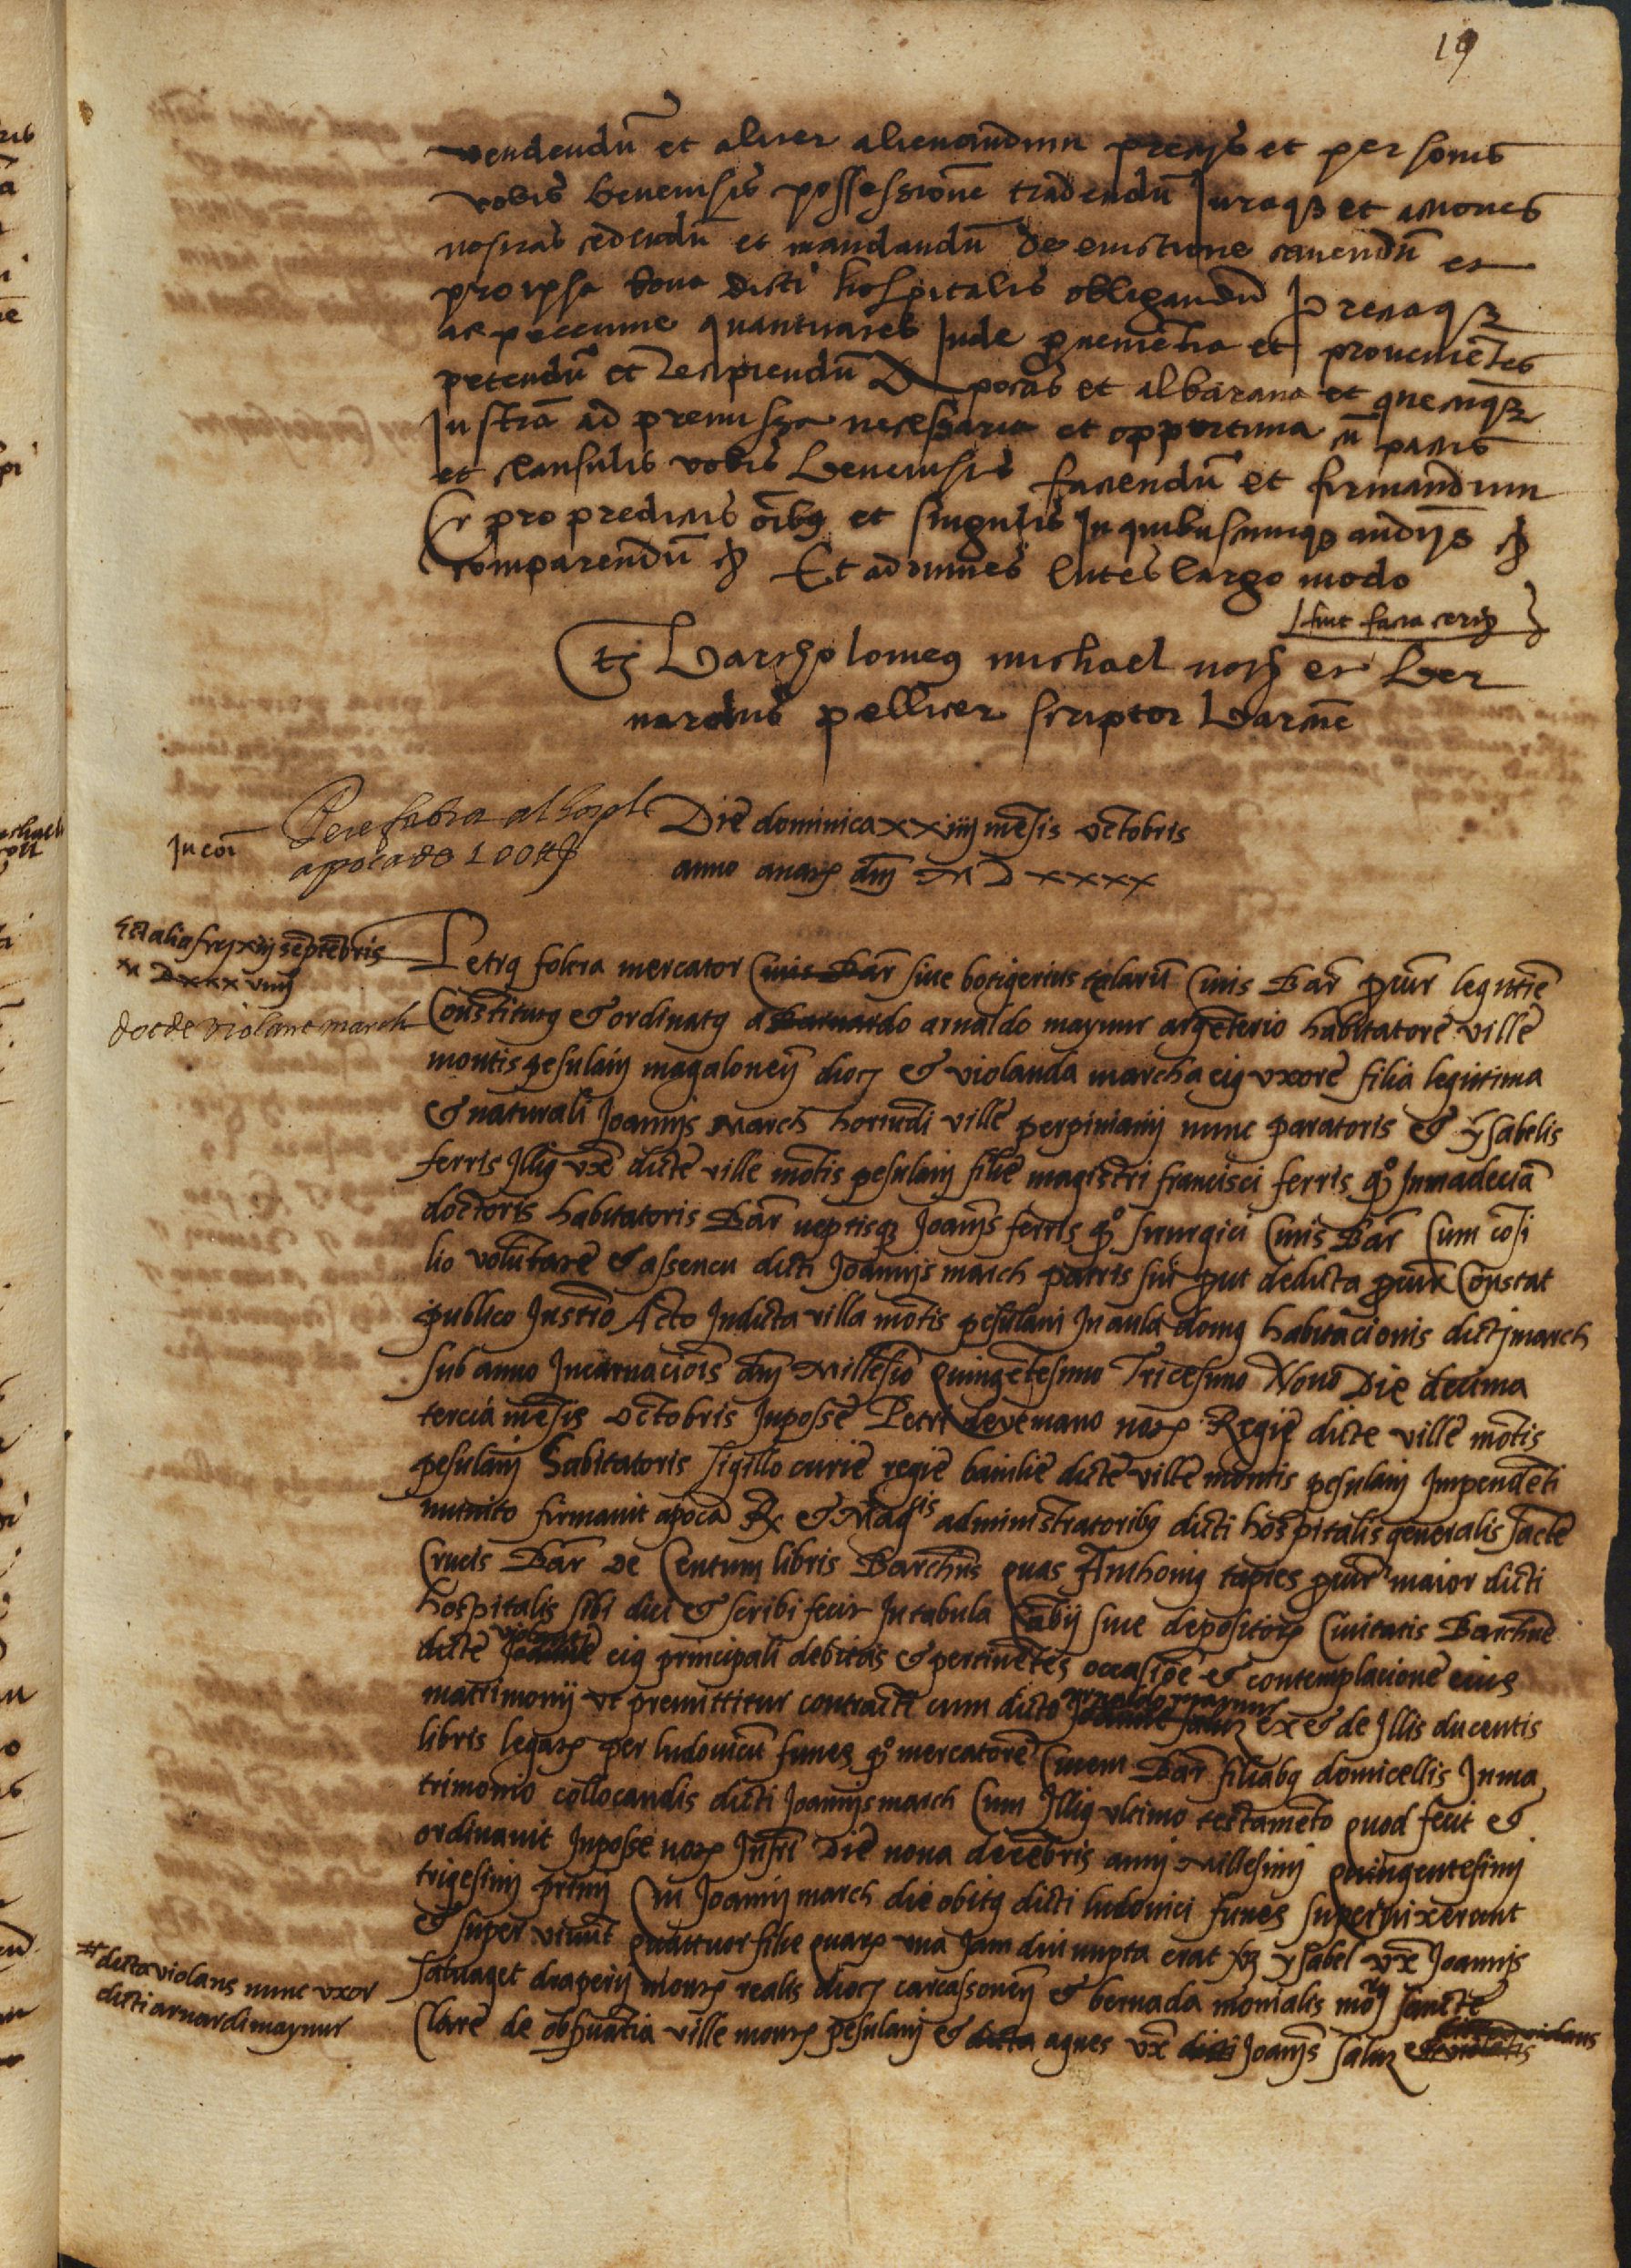 19
vendendū et aliter alienandum precijs et personis
vobis benevisis possessionē tradendū Juraqȝ et actiones
nostras cedendū et mandandū de evictione cavendū et
pro ipsa bona dicti hospitalis obligandū preciaqȝ
ac peccunie quantitates Inde pvenientia et provenietēs
petendū et Recipiendū Apocas et albarana et quecūqȝ
Instrā ad premissa necessaria et opportuna cū pactis
et clausulis vobis benevisis faciendū et firmandum
Et pro predictis oībȝ et singulis In quibuscumqȝ audijs
comparendū Et ad omnes lites largo modo
fiat facta
tꝭ Bartholomeꝰ michael notȝ et Ber
nardus pellicer scriptor Barnē
Pere folera al hospl
apoca de 100
In cōi
Die dominica xxiiij mēsis octobris
anno a natȝ dnj M D xxxx
Est alia xiij septēbris
M D xxx viiij
dot de violant march
Petrꝰ folera mercator Civis Bar̄ sive botigerius telarū Civis Bar̄ pcūr legittiē
Constitutꝰ & ordinatꝰ a Barnardo arnaldo maynur argēterio habitatorē villē
montispesulanj magalonen̄ diocȝ & violanda marcha eiꝰ vxorē filia legittima
& naturali Joannis March horiundi villē perpinianj nunc paratoris & ysabelis
ferris Illiꝰ vxē dictē ville mōtis pesulanj filiē magistri francisci ferris qº In madeciā
doctoris habitatoris Bar̄ neptisqȝ Joanīs ferris qº sirurgici Civis Bar̄ Cum cōsi
lio volūtatē & assencu dicti Joannis march patris sui put dedicta pcūr Constat
publico Instrō Acto In dicta villa mōtis pesulani In aula domꝰ habitacionis dicti march
sub anno Incarnaciōis dnj Millesīo quingētesimo Tricesimo Nono Die decima
tercia mēsis octobris In possē Petri devemano notȝ Regiē dicte villē mōtis
pesulanj habitatoris sigillo curiē regiē bailiē dictē villē montis pesulanj Impendēti
munito firmavit apocā & Magcis administratoribꝰ dicti hospitalis generalis sāctē
Crucis Bar̄ de Centum libris Barchns quas Anthoniꝰ tapies pcūr maior dicti
hospitalis sibi dici & scribi fecit In tabula Cābij sive depositorȝ Civitatis Barchnē
dictē Joannē violanti eiꝰ principali debitas & pertinētes occasiōē & contemplacionē eius
matrimonij vt premittitur contracti cum dicto Joannē salvȝ arnaldo maynur ex & de Illis ducentis
libris legatȝ per ludovicū funes qº mercatorē Civem Bar̄ filiabꝰ domicellis In ma
trimonio collocandis dicti Joannis march Cum Illiꝰ vltimo testamēto quod fecit &
ordinavit In posse notȝ Infri Die nona decēbris anni Millesimj quingentesimj
trigesimj primj Cui Joannj march die obitꝰ dicti ludovici funes supervixerant
& super vivūt quattuor filie quarȝ vna Jam diu nupta erat sȝ ysabel vxē Joannis
salvaget draperij montȝ realis diocȝ carcassonen̄ & bernada monialis moȝ sanctē
Clarē de observātia villē montȝ pesulanj & dicta agnes vxē dicti Joanīs salvȝ & violātis dicta violans
# dicta violans nunc vxor
dicti arnardi maynur